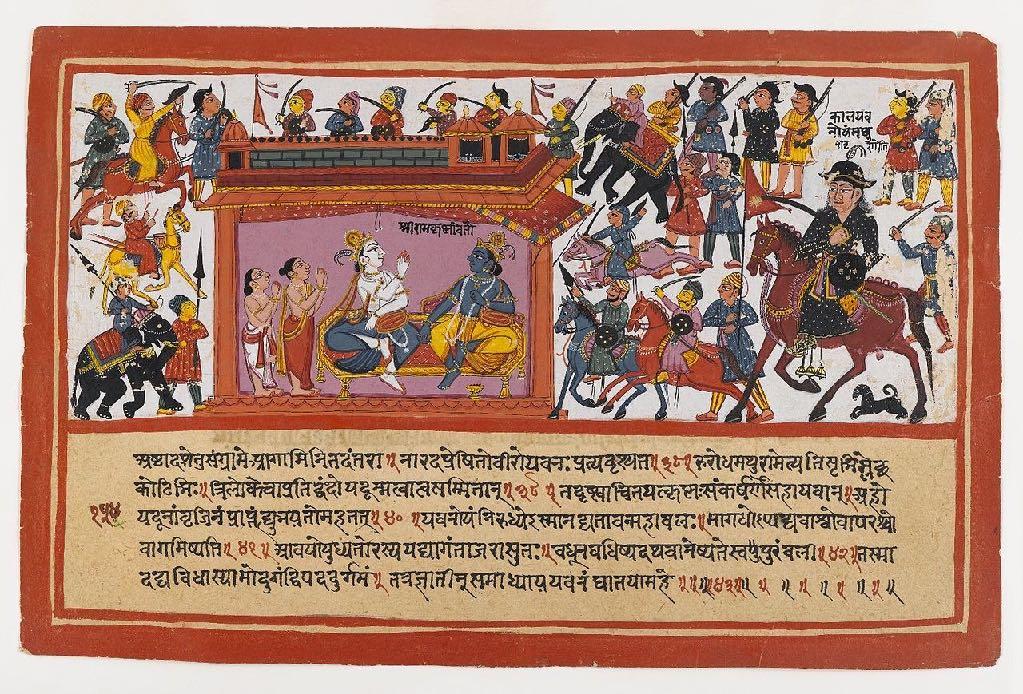 श्रीरामकृष्ण
कालयव
अष्टादशमेनुसंग्रामे आगामिनि तदंतरा ॥ नारदप्रेषितो वीरो यवनः प्रत्यदृश्यत ॥३८॥ रुरोध मथुरामेत्य तिसृभिर्म्लेछ
कोटिभिः ॥ त्रिलोके चाप्रतिद्वंद्वो यदून् श्रुत्वात्मसम्मितान् ॥३९॥ तं दृष्ट्वाचिंतयत्कृष्णः संकर्षणसहायवान् ॥ अहो
यदूनां वृजिनं प्राप्तं ह्युभयतो महत् ॥४०॥ यवनोयं निरुंधेऽस्मानद्य तावन्महाबलः ॥ मागधोप्यद्य वा श्वो वा परश्वो
वागमिष्यति ॥४१॥ आवयोयुध्यतोरस्य यद्यागंता जरासुतः ॥ बंधून् वधिष्यत्यथवा नेष्यते स्वपुरं बली ॥४२॥ तस्मा
दद्य विधास्यामो दुर्गं द्विपददुर्गमं ॥ तत्र ज्ञातीन् समाधाय यवनं घातयामहे ॥४३॥